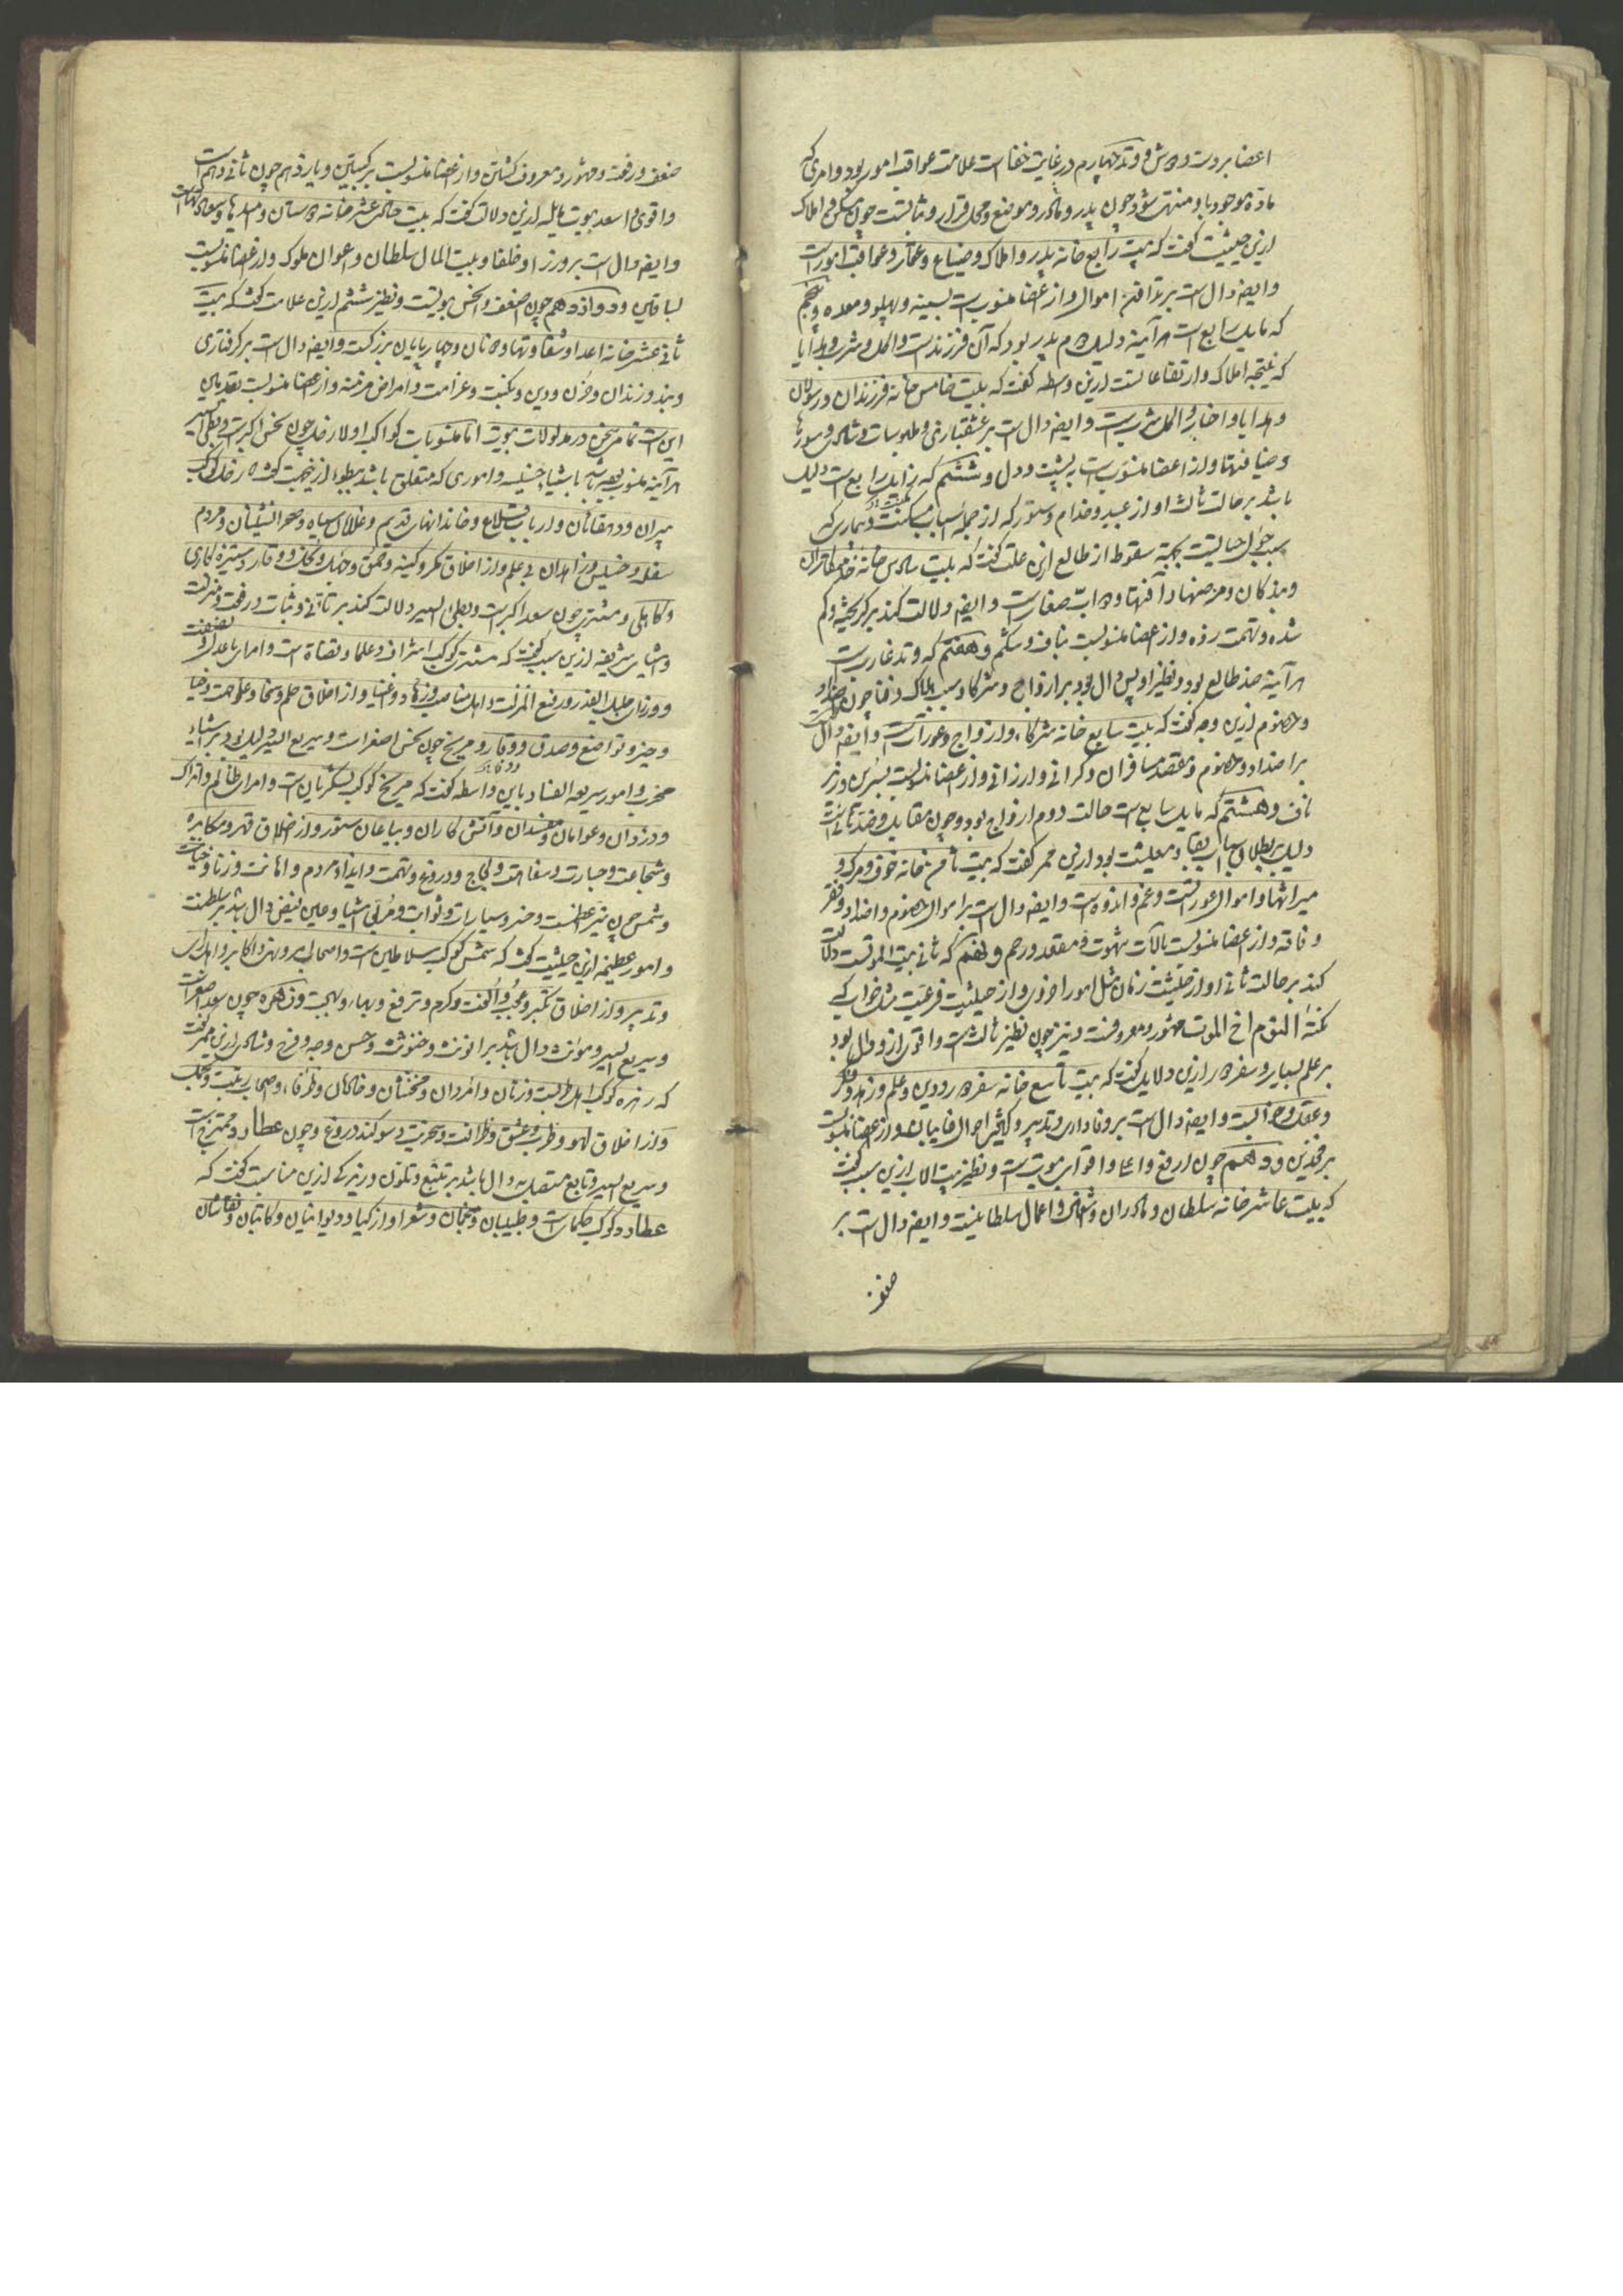 اعضا بر دست و دوش و وتد چهارم در غایت خفاست علامت عواقب امور بود و امری که
ماده موجود با و منتهی شود چون پدر و مادر و موضع و محل قرار و ثابتست چون مسکن و املاک
ازین حیثیت گفت که بیت رابع خانه پدر و املاک و ضیاع و عمار و عواقب امورست
وایضه دال است بر اموال و از اعضا منسوبست بسینه و پهلو و معده و پنجم
که مایل رابع است هرآینه دلیل دوم پدر بود که آن فرزندست و اکل و شرب و هدایا
که نتیجه املاک و ارتفاعاتست ازین واسطه گفت که بیت خامس خانه فرزندان و رسولان
و هدایا و اخبار و اکل و شربست وایضه دال است بر عشقبازی و ملبوسات و شادی و سورها
و ضیافتها و از اعضا منسوبست به پشت و دل و ششم که زایل رابع است دلیل
باشد بر حالت ثالث او از عبید و خدام و ستور که از جمله اسباب مسکنت و بیماری که
بجهة سقوط از طالع ازین علت گفت که بیت سادس خانه
و بندکان و مرضها و آفتها و دواب صغارست وایضه دلالت کند بر کریخته و کم
شده و تهمت زده و از اعضا منسوبست بناف و شکم و هفتم که وتد غاربست
هرآینه ضد طالع بود و نظیر او پس دال بود بر ازواج و شرکا و سبب هلاک و فنا چون اضداد
و خصوم ازین وجه گفت که بیت سابع خانه شرکاء و ازواج و عوراتست وایضه دال
بر اضداد و خصوم و مقصد مسافران و کرانی و ارزانی و از اعضا منسوبست بسرین و زیر
ناف و هشتم که مایل سابع است حالت دوم ازواج بود و چون مقابل و ضد ثانیست
دلیل بر بطلان اسباب بقا و معیشت بود ازین ممر گفت که بیت ثامن خانه خوف و مرک و
میراثها و اموال عوراتست و غم و اندوه است وایضه دال است بر اموال خصوم و اضداد و فقر
و فاقه و از اعضا منسوبست بآلات شهوت و مقعد و رحم و نهم که ثانی بیت الموتست دلالت
کند بر حالت ثانی او از حیثیت زمان مثل امور اخروی و از حیثیت فرعیت مثل خواب که
نکته النوم اخ الموت مشهور و معروفست و نیز چون نظیر ثالث است و اقوی ازو دال بود
بر علم بسیار و سفر دور ازین دلایل گفت که بیت تاسع خانه سفر دور و دین و علم و زهد و فکر
و عقل و خوابست وایضه دال است بر وفاداری و تدبیر و تغییر احوال غایبان و از اعضا منسوبست
بر فخذین و دهم چون ارفع و اعلا و اقوای بیوتست و نظیر بیت الاب ازین سبب گفت
که بیت عاشر خانه سلطان و مادران و شغل و اعمال سلطانیست وایضه دال است بر
صنعت
و رفعت و مشهور و معروف کشتن و از اعضا منسوبست بر رکبتین و یازدهم چون ثانی دهم است
و اقوی و اسعد بیوت مایله ازین دلالت گفت که بیت حادی عشر خانه دوستان و امیدها و سعادتهاست
وایضه دال است بر وزرا و خلفا و بیت المال سلطان و اعوان ملوک و از اعضا منسوبست
بساقین و دوازدهم چون اضعف و انحس بیوتست و نظیر ششم ازین علامت گفت که بیت
ثانی عشر خانه اعدا و شقاوتها و دشمنان و چهارپایان بزرکست وایضه دال است بر کرفتاری
و بند و زندان و حزن و دین و نکبت و غرامت و امراض مزمنه و از اعضا منسوبست بقدمین
این است تمامی سخن در مدلولات بیوت اما منسوبات کواکب اولا زحل چون نحس اکبرست و بطی السیر
هرآینه منسوب باشد باشیاء خسیسه و اموری که متعلق باشد ببطوء ازینجهت گفته که زحل کوکب
پیران و دهقانان و ارباب قلاع و خاندانهای قدیم و غلامان سیاه و صحرانشینان و مردم
سفله و خسیس و زاهدان بی علم و از اخلاق مکر و کینه و حمق و جهل و بخل و وقار و ستیزه کاری
و کاهلی و مشتری چون سعد اکبرست و بطی السیر دلالت کند بر تانی و ثبات و رفعت و منزلت
و اشیاء شریفه ازین سبب گفت که مشتری کوکب اشراف و علما و قضاة است و امرای باعدل و
و وزراء جلیل القدر و رفیع المنزلت و اهل مناصب و زهاد و اغنیا و از اخلاق حلم و سخا و علو همت و حیا
و خیر و تواضع و صدق و وقار و مریخ چون نحس اصغرست و سریع السیر دلیل بود بر اشیاء
مخرب و امور سریعه الفساد باین واسطه گفت که مریخ کوکب لشکریان است و امرای ظالم و اتراک
و دزدان و عوانان و مفسدان و آتش کاران و بیاعان ستور و از اخلاق قهر و مکابره
و شجاعت و جسارت و سفاهت و لجاج و دروغ و تهمت و ایذاء مردم و اهانت و زنا و خیانت
و شمس چون نیر اعظمست و خسرو سیارات و ثوابت و مربی اشیا و عین فیض دال باشد بر سلطنت
و امور عظیمه ازین حیثیت گفت که شمس کوکب سلاطین است و اصحاب امر و نهی و اکابر و اهل
و تدبیر و از اخلاق تکبر و عجب و الفت و کرم و ترفع و بهاء و بهجت و زهره چون سعد اصغرست
و سریع السیر و مونث دال باشد بر انوثت و خنوثت و حسن وجه و فرح و شادی ازین ممر گفت
که زهره کوکب اهل طربست و زنان و امردان و مخنثان و خادمان و ظرفاء و اصحاب زینت و تجمل
و از اخلاق لهو و طرب و عشق و ظرافت و سخریت و سوکند دروغ و چون عطارد ممتزج است
و سریع السیر و تابع متصل به دال باشد بر تتبع و تلون و زیرکی ازین مناسبت گفت که
عطارد کوکب حکماست و طبیبان و منجمان و شعرا و ازکیا و دیوانیان و کاتبان و نقاشان